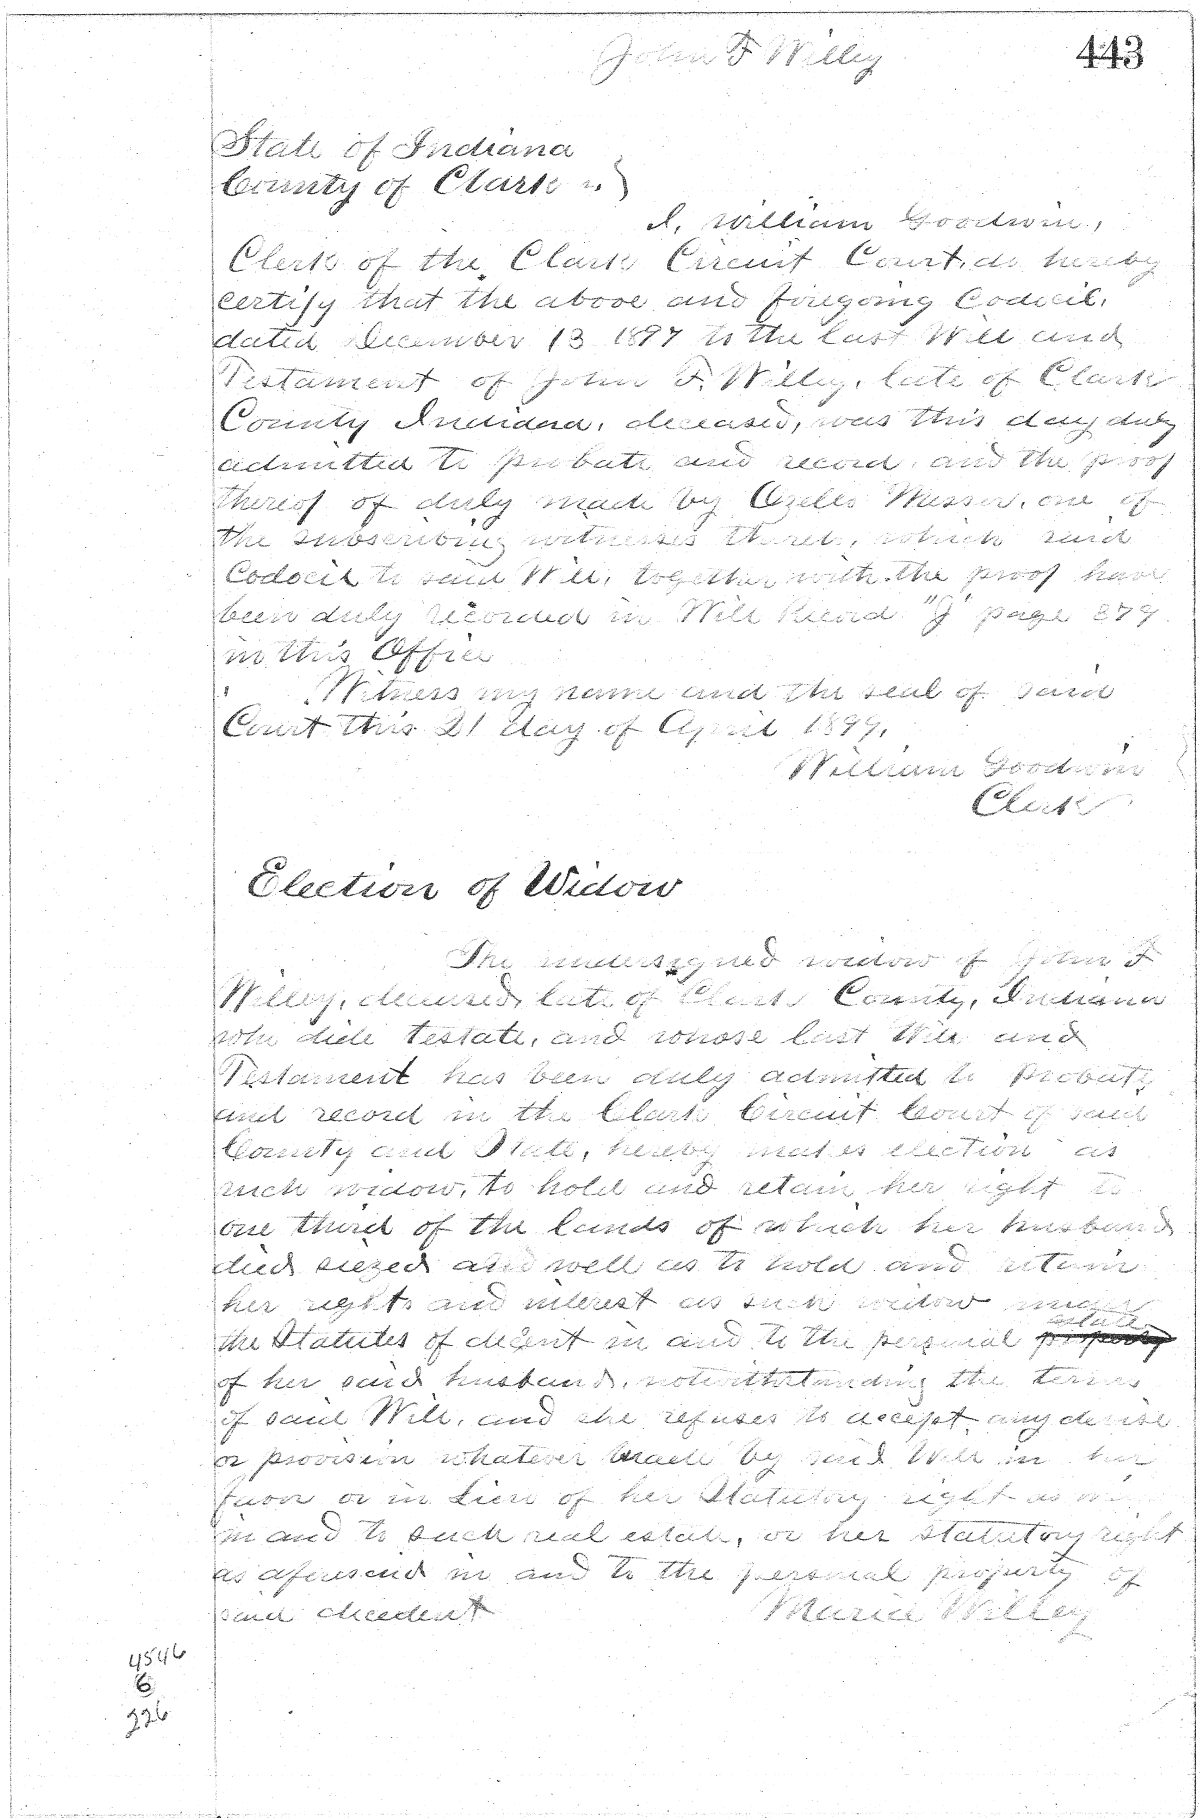 John F Willey
443
State of Indiana
County of Clark ss }
I, William Goodwin,
Clerk of the Clark Circuit Court, do hereby
certify that the above and foregoing Codicil,
dated December 13 1897 to the last Will and
Testament of John F. Willey, late of Clark
County Indiana, deceased, was this day duly
admitted to probate and record, and the proof
thereof of duly made by Ozello Messer, one of
the subscribing witnesses thereto, which said
Codocil to said Will, together with the proof have
been duly recorded in Will Record "J" page 379
in this Office
Witness my name and the seal of said
Court this 21 day of April 1899.
William Goodwin
Clerk
Election of Widow
The undersigned widow of John F
Willey, deceased, late of Clark County, Indiana
who dide testate, and whose last Will and
Testament has been duly admitted to Probate
and record in the Clark Circuit Court of said
County and State, hereby makes election as
such widow, to hold and retain her right to
one third of the lands of which her husband
died siezed and well as to hold and retain
her rights and interest as such widow under
the Statutes of decent in and to the personal estate property
of her said husband, notwithstanding the terms
of said Will, and she refuses to accept any devise
or provision whatever made by said Will in her
favor or in Lieu of her Statutory right as
in and to such real estate, or her statutory right
as aforesaid in and to the personal property of
said decedent Marie Willey
4546
6
226